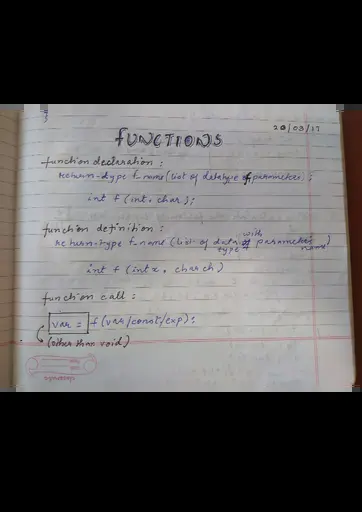 20/03/17
FUNCTIONS
function declaration :
return-type f-name (list of datatype of parameters) ;
int f (int, char);
function definition :
return-type f-name (list of data type of with parameters name)
int f (int x, char ch)
function call :
var = f (var/const/exp) ;
(other than void)